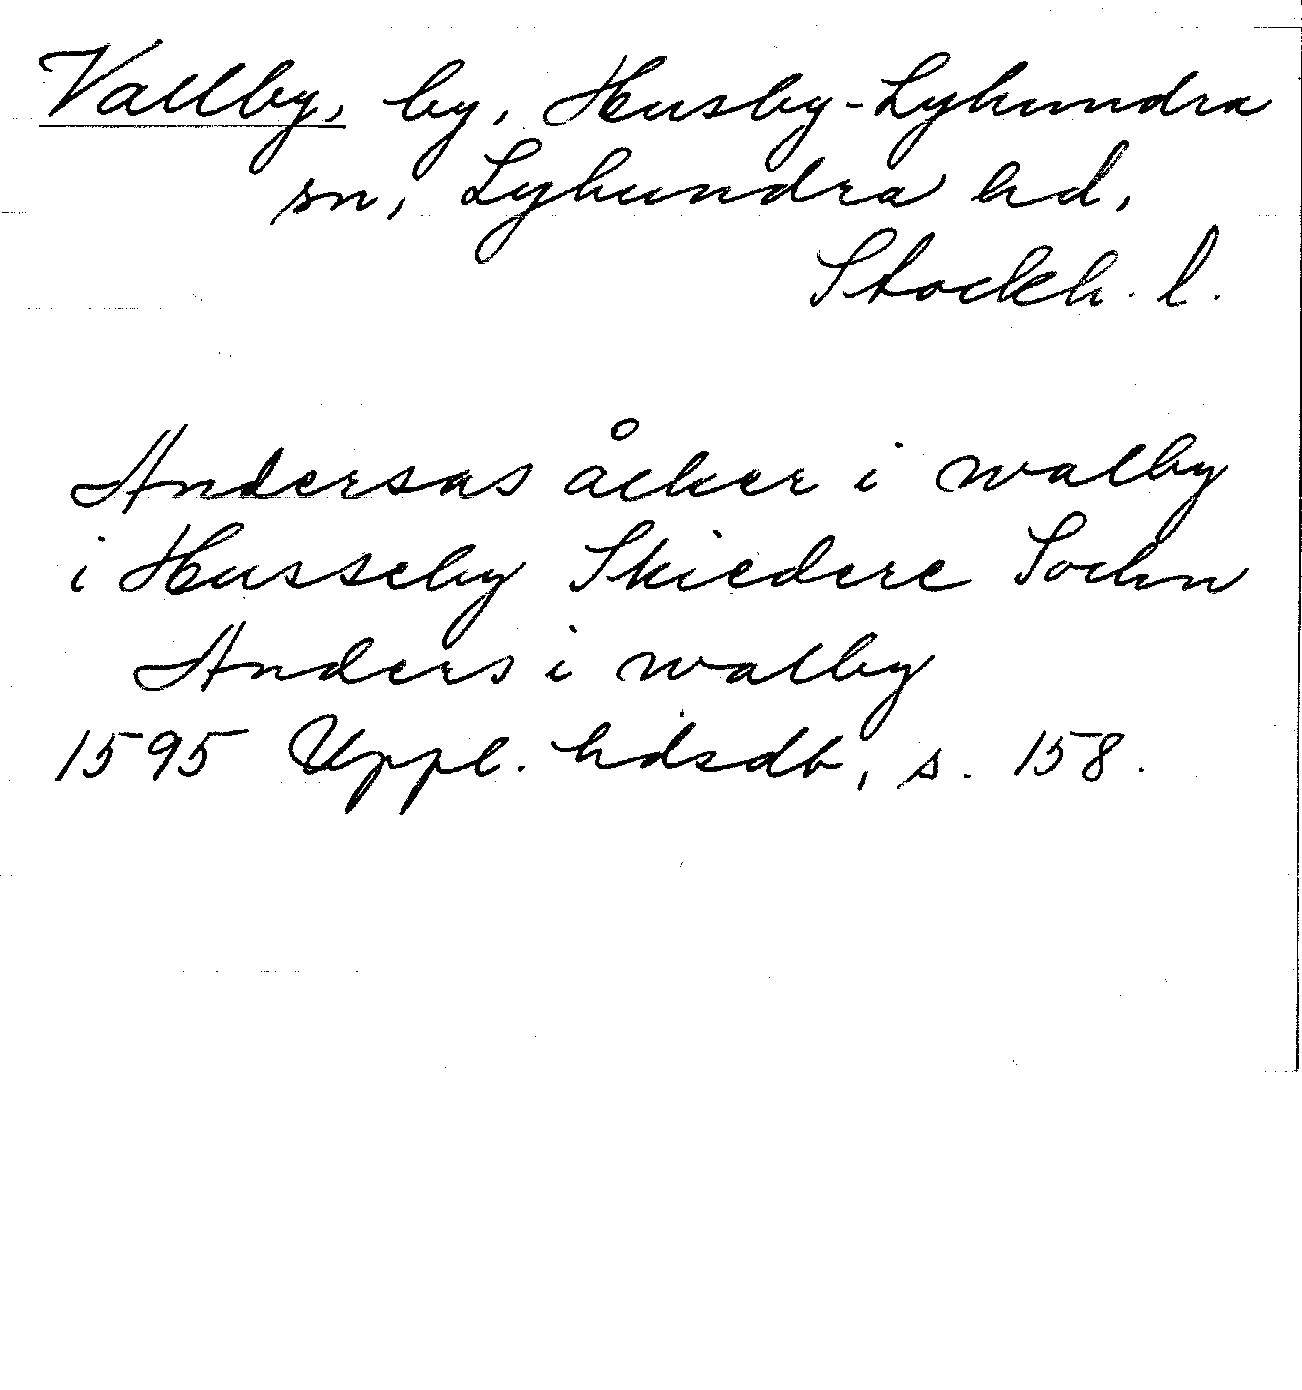 Vallby, by, Husby-Lyhundra
sn, Lyhundra hd,
Stockh. l.
Andersas åcker i walby
i Husseby Skiedere Sochn
Anders i walby
1595 Uppl. hdsdb, s. 158.